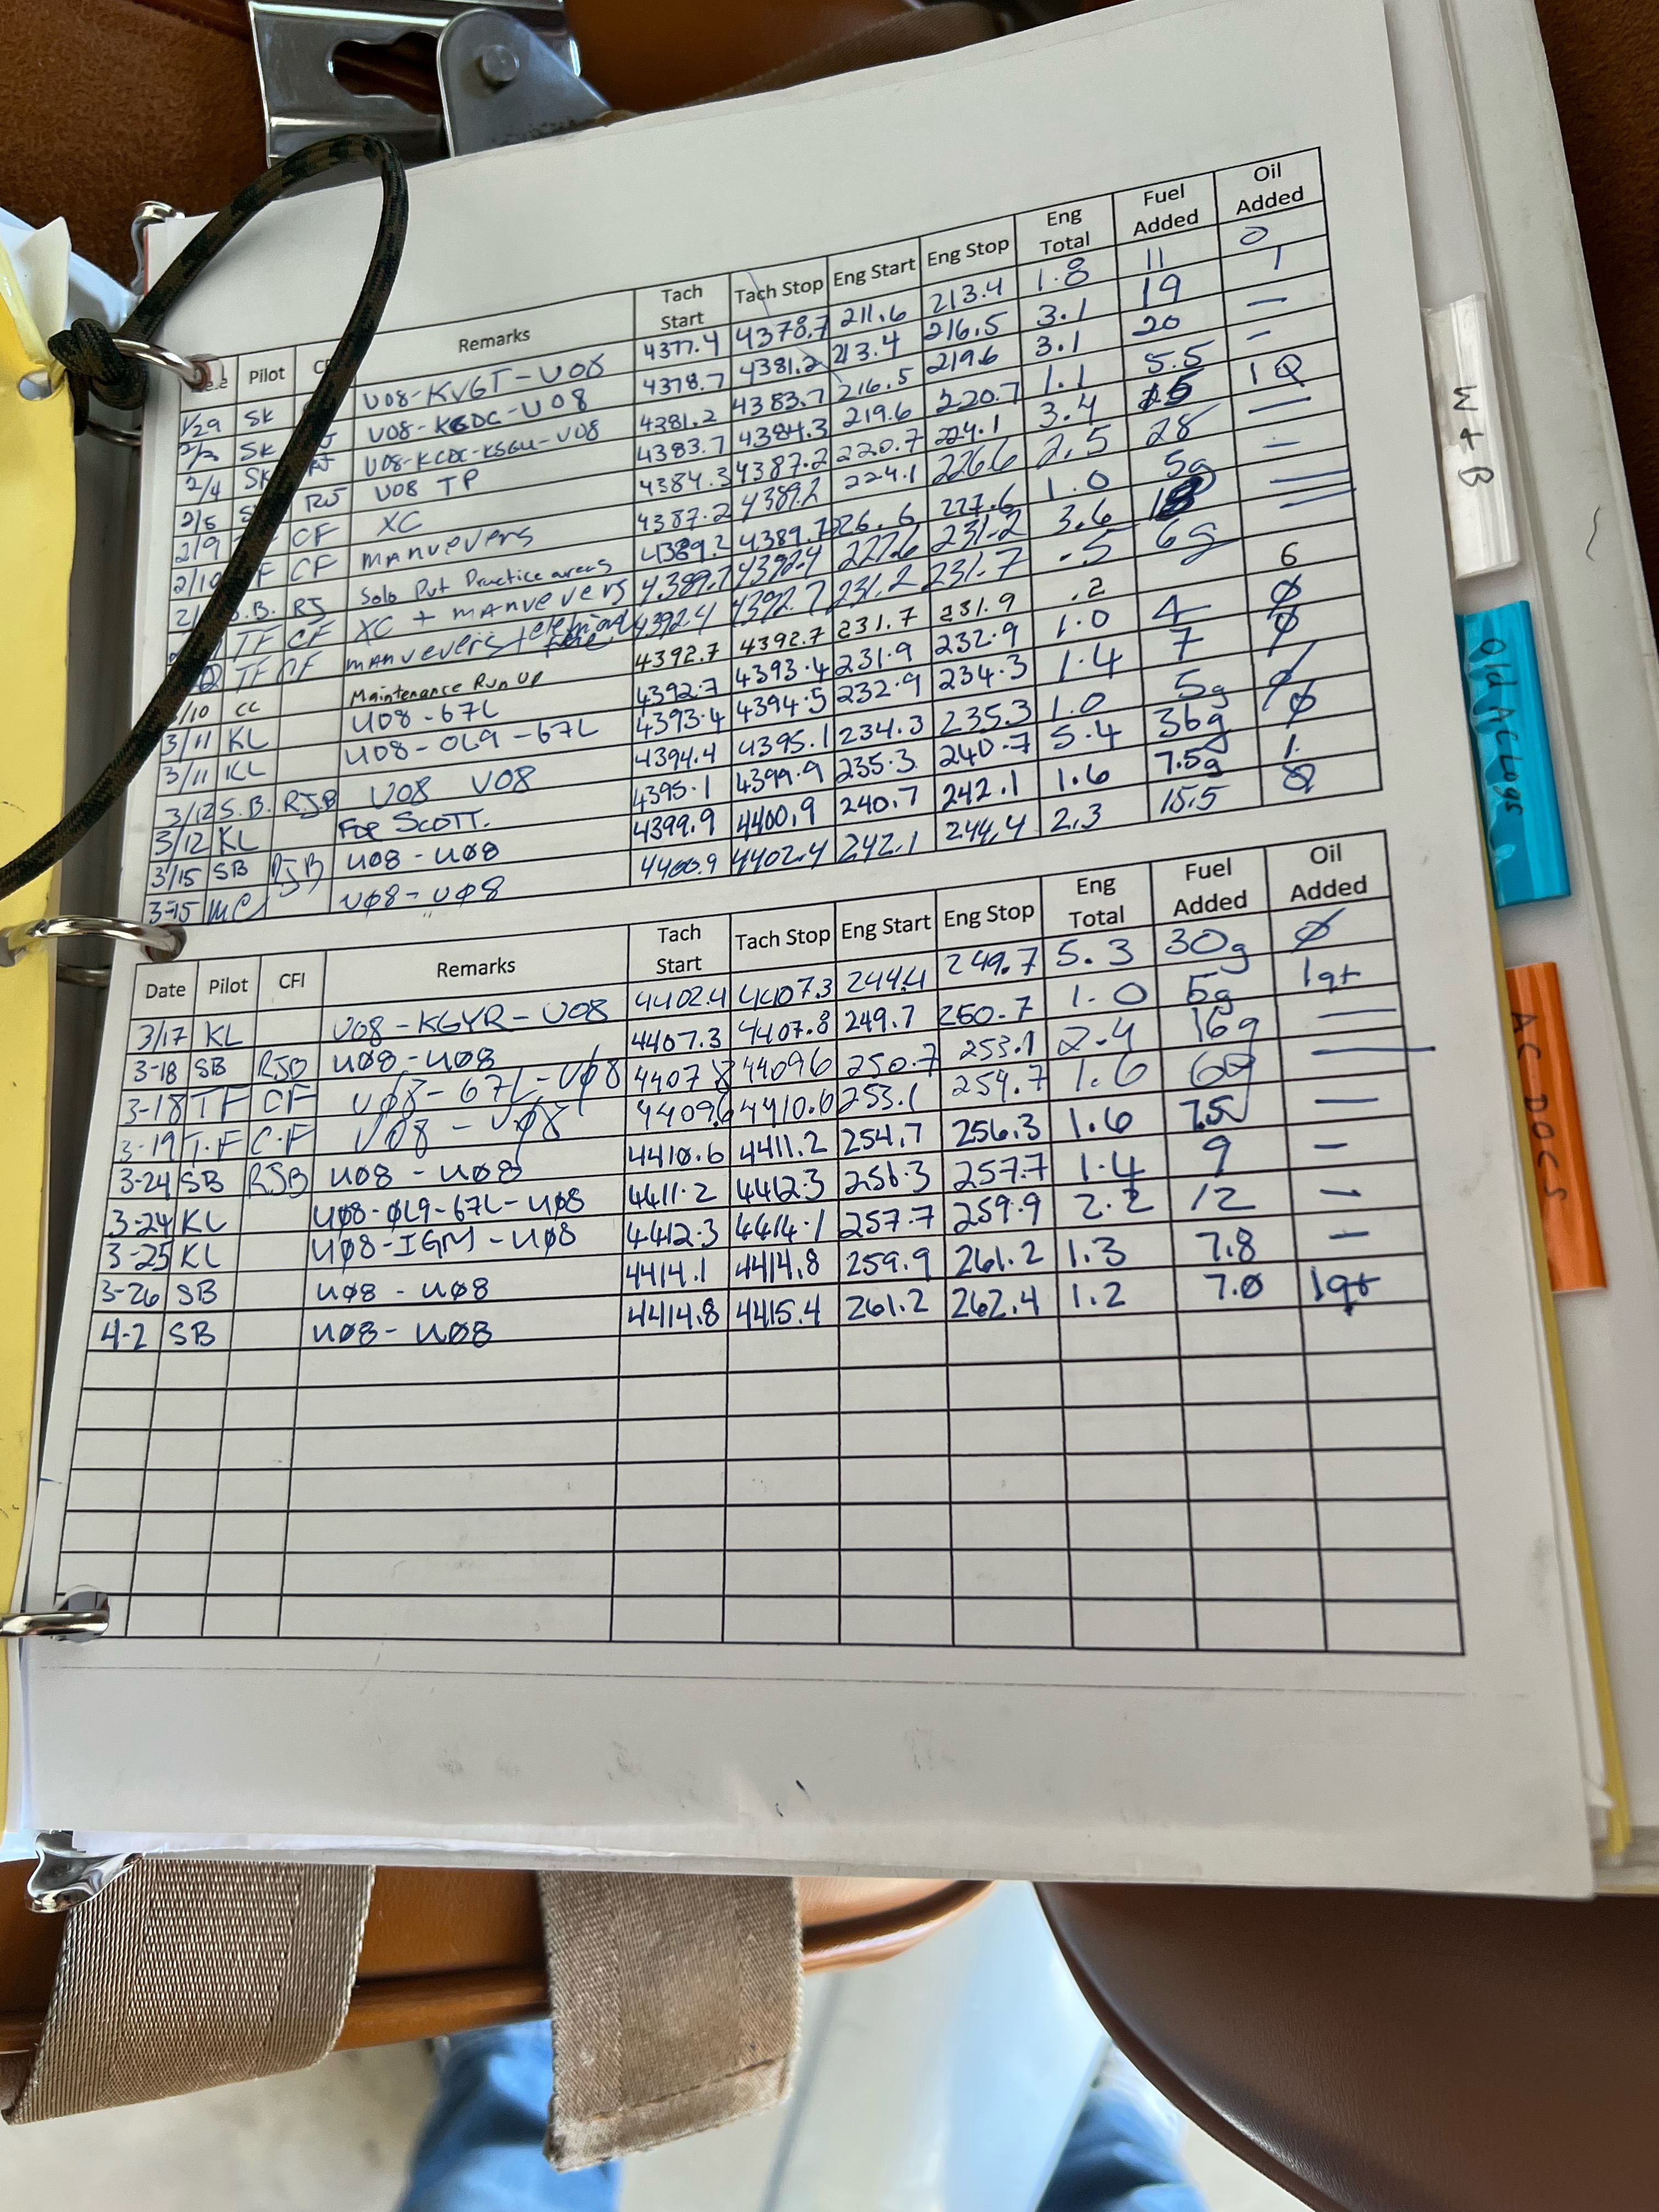 Pilot Remarks Tach Start Tach Stop Eng Start Eng Stop Eng Total Fuel Added Oil Added
1/29 SK U08-KVGT-U08 4377.4 4378.7 211.6 213.4 1.8 11 0
SK U08-KCDC-U08 4378.7 4381.2 213.4 216.5 3.1 19 1
2/4 SK U08-KCDC-KSGU-U08 4381.2 4383.7 216.5 219.6 3.1 20 —
2/5 RJ U08 TP 4383.7 4384.3 219.6 220.7 1.1 5.5 —
2/9 CF XC 4384.3 4387.2 220.7 224.1 3.4 1Q
2/10 F CF MANVEVERS 4387.2 4389.2 224.1 226.6 2.5 28 —
2/ S.B. RJ Solo Prt Practice areas 4389.2 4389.7 226.6 227.6 1.0 5g —
TF CF XC + MANVEVERS 4389.7 4392.4 227.6 231.2 3.6 —
TF CF MANVEVERS + 4392.4 4392.7 231.2 231.7 .5 6g —
/10 CC Maintenance Run Up 4392.7 4392.7 231.7 231.9 .2 6
3/11 KL U08-67L 4392.7 4393.4 231.9 232.9 1.0 4 Ø
3/11 KL U08-0L9-67L 4393.4 4394.5 232.9 234.3 1.4 7 Ø
3/12 S.B. RJB U08 U08 4394.4 4395.1 234.3 235.3 1.0 5g Ø
3/12 KL FOR SCOTT. 4395.1 4399.9 235.3 240.7 5.4 36g Ø
3/15 SB RJB U08-U08 4399.9 4400.9 240.7 242.1 1.6 7.5g 1.
3-15 MC UØ8-UØ8 4400.9 4402.4 242.1 244.4 2.3 15.5 Ø
Date Pilot CFI Remarks Tach Start Tach Stop Eng Start Eng Stop Eng Total Fuel Added Oil Added
3/17 KL U08-KGYR-U08 4402.4 4407.3 244.4 249.7 5.3 30g Ø
3-18 SB RJB UØ8-UØ8 4407.3 4407.8 249.7 250.7 1.0 5g 1qt
3-18 TF CF UØ8-67L-UØ8 4407 8 4409 6 250.7 253.1 2.4 16g —
3-19 T.F C.F U08-UØ8 4409.6 4410.6 253.1 254.7 1.6 —
3-24 SB RJB U08-UØ8 4410.6 4411.2 254.7 256.3 1.6 7.5 —
3-24 KL UØ8-ØL9-67L-UØ8 4411.2 4412.3 256.3 257.7 1.4 9 —
3-25 KL UØ8-IGM-UØ8 4412.3 4414.1 257.7 259.9 2.2 12 —
3-26 SB UØ8-UØ8 4414.1 4414.8 259.9 261.2 1.3 7.8 —
4-2 SB UØ8-UØ8 4414.8 4415.4 261.2 262.4 1.2 7.0 1qt
W + B
Old AC Logs
AC-DOCS